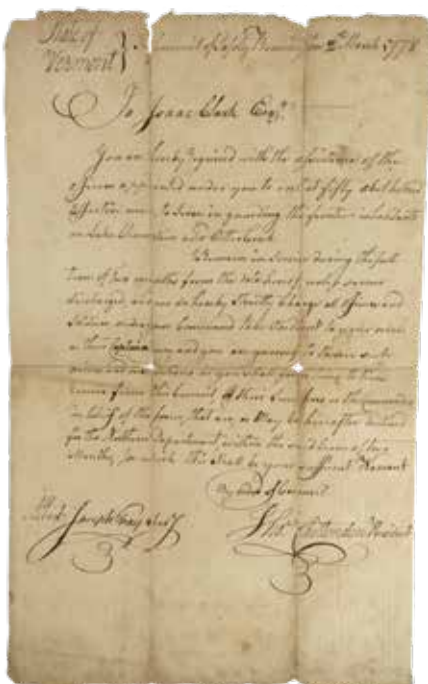 State of
Vermont } Council of Safety Bennington March 1778
To Isaac Clark Esqr.
You are hereby required with the assistance of the
officers appointed under you to enlist fifty able bodied
effective men, to serve in guarding the frontier inhabitants
on Lake Champlain and Otter Creek
To Remain in Service during the full
term of two months from the unless sooner
discharged, and you do hereby Strictly charge all officers and
Soldiers under your Command to be obedient to your orders
as their Captain and you are generally to observe such
orders and as you shall from time to time
receive from this Council
of the that are, or May be hereafter
for the Northern department within the said term of two
Months, for which this shall be your sufficient Warrant
By order of Council
Joseph Fay Secy
Thos. Chittenden President